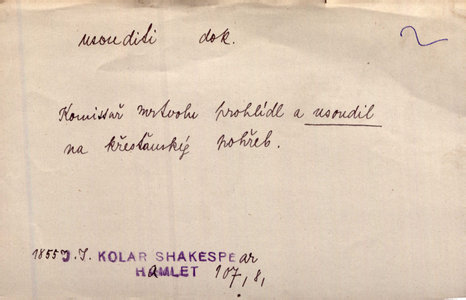 usouditi dok.
Komissař mrtvolu prohlídl a usoudil
na křesťanský pohřeb.
1855 J. J. KOLAR SHAKESPEar
HaMLET 107, 8,